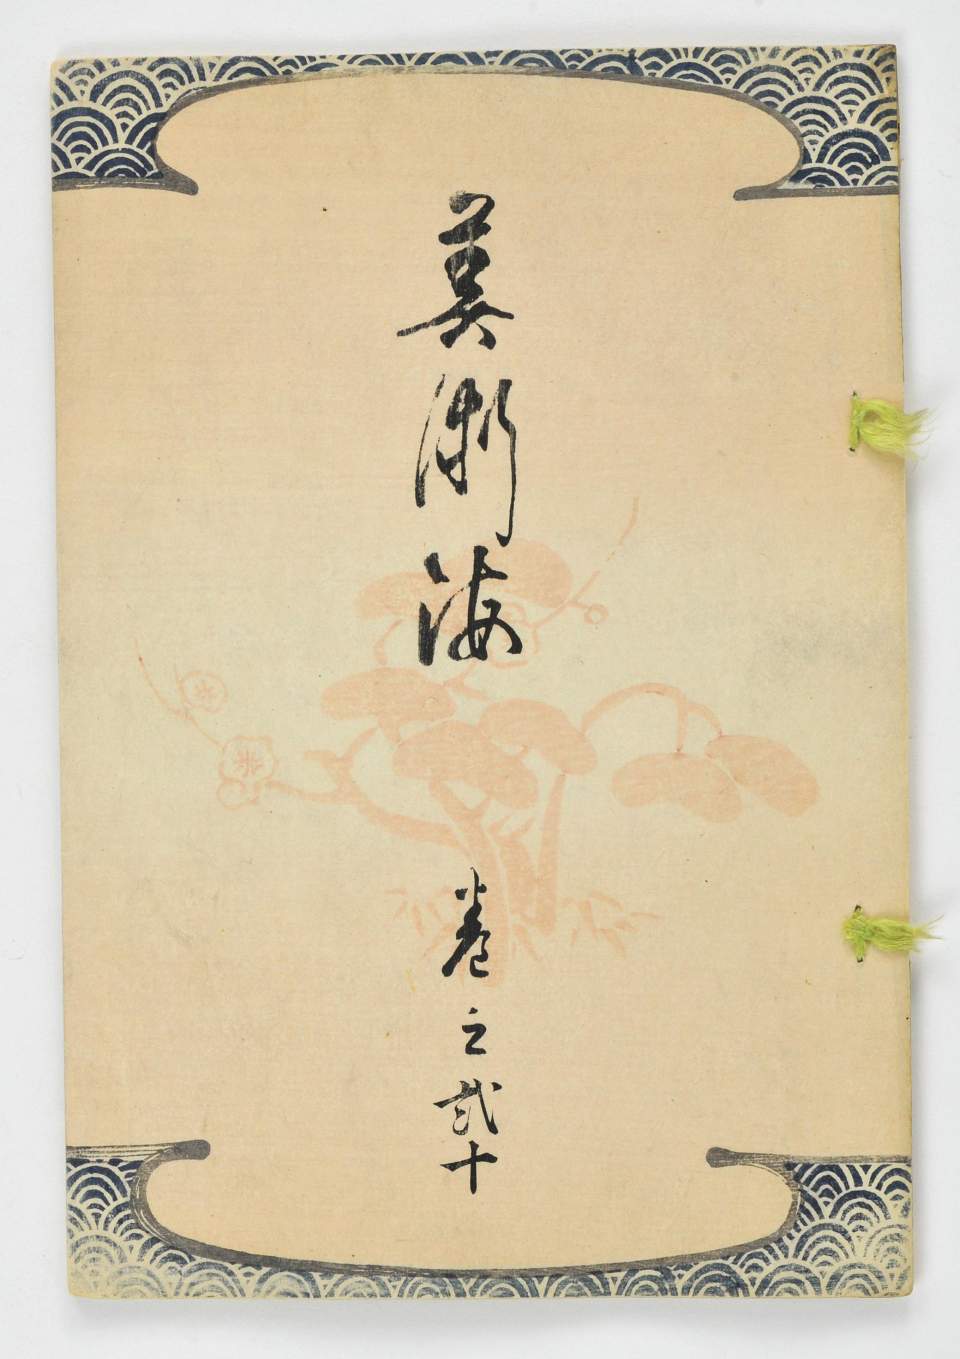 美術海
巻之弐十